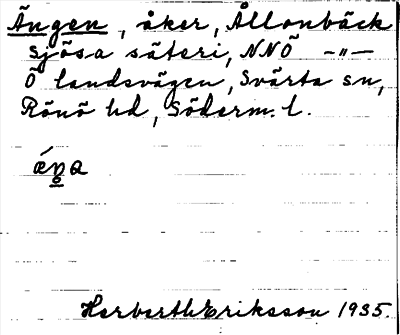 Ängen, åker, Ållonbäck
Sjösa säteri, NNÖ –"–
Ö landsvägen, Svärta sn,
Rönö hd, Söderm. l.
Herberth Eriksson 1935.